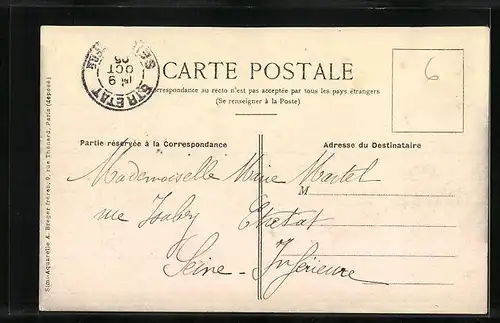 ETRETAT
9
OCT
05
CARTE POSTALE
Correspondance au recto n'est pas acceptée par tous les pays étrangers
(Se renseigner à la Poste)
6
Partie réservée à la Correspondance
Adresse du Destinataire
M
Mademoiselle Marie Martel
rue Isabey Etretat
Seine-Inférieure
Simi-Aquarelle A. Breger frères, 9, rue Thénard, Paris (déposé)